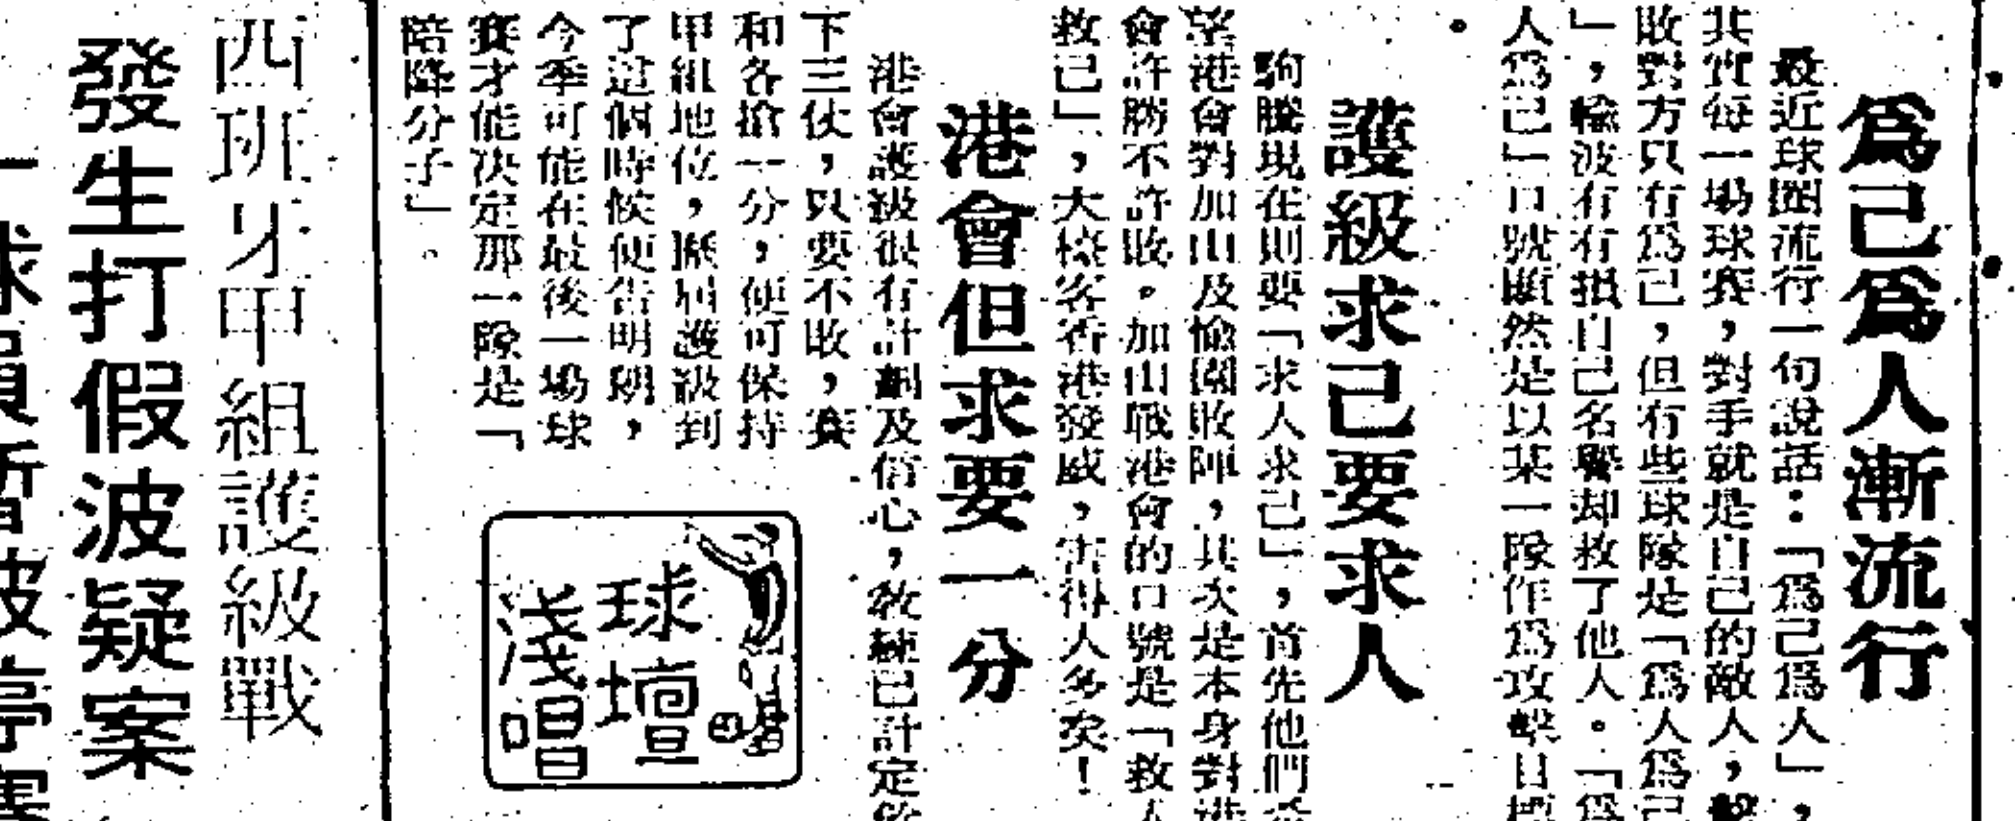 爲己爲人漸流行
最近球圈流行一句說話：「爲己爲人」，
其實每一場球賽，對手就是自己的敵人，擊
敗對方只有爲己，但有些球隊是「爲人爲己
」，輸波有冇損自己名譽却救了他人。「爲
人爲己」口號顯然是以某一隊作爲攻擊目標
。
護級求己要求人
駒騰現在則要「求人求己」，首先他們希
望港會對加山及愉園敗陣，其次是本身對港
會許勝不許敗。加山戰港會的口號是「救人
救己」，大檳客香港發威，害得人多矣！
港會但求要一分
港會護級很有計劃及信心，教練已計定餘
下三仗，只要不敗，賽
和各搶一分，便可保持
甲組地位，斯屆護級到
了這個時候便告明朗，
今季可能在最後一場球
賽才能决定那一隊是「
陪降分子」。
球壇
淺唱
西班牙甲組護級戰
發生打假波疑案